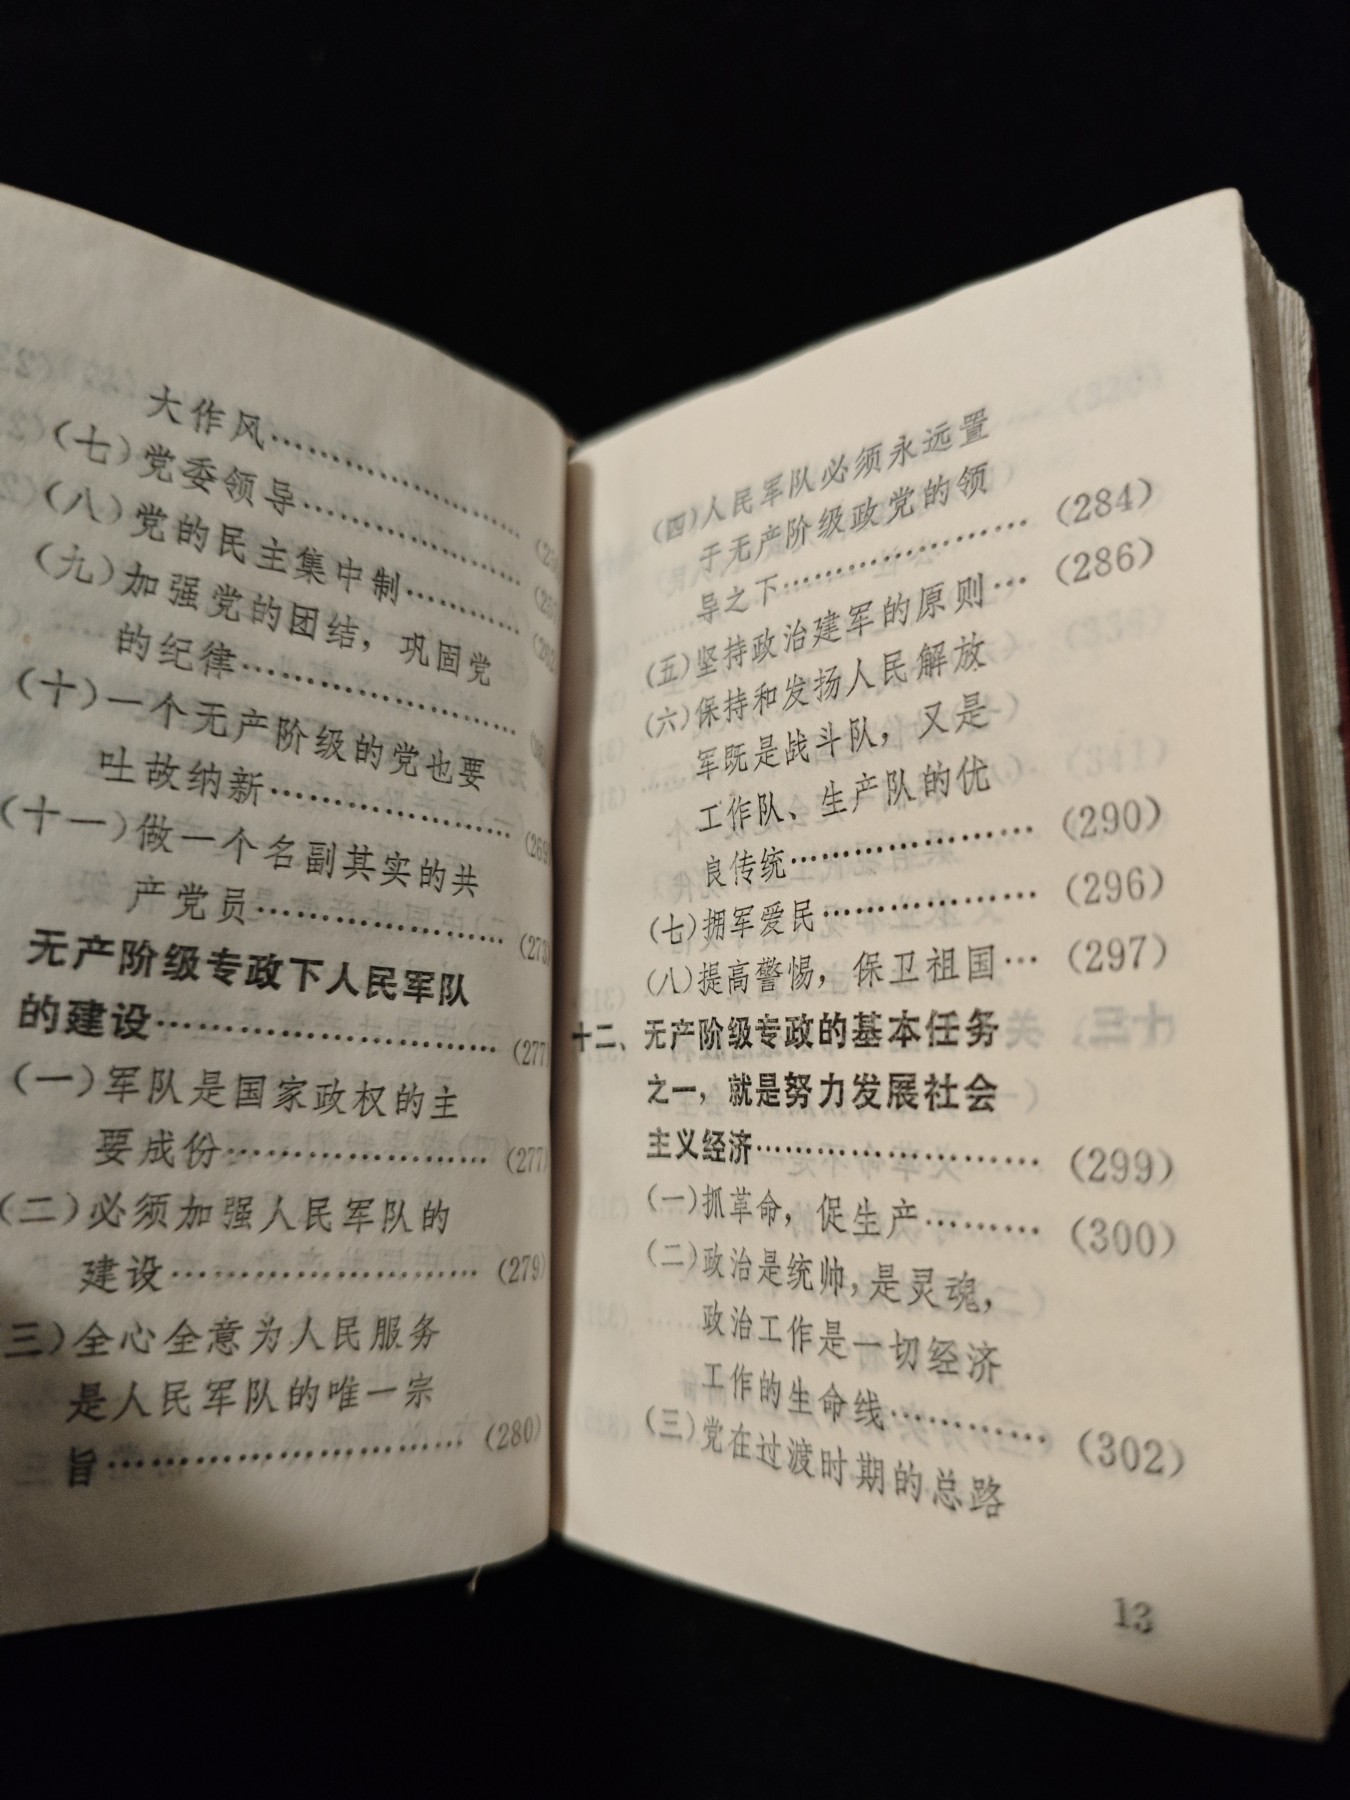 大作风……………………
(七)党委领导……………………
(八)党的民主集中制…………
(九)加强党的团结，巩固党
的纪律……………………
(十)一个无产阶级的党也要
吐故纳新……………………(269
(十一)做一个名副其实的共
产党员……………………(273
无产阶级专政下人民军队
的建设……………………(277
(一)军队是国家政权的主
要成份……………………(277)
(二)必须加强人民军队的
建设……………………(279)
三)全心全意为人民服务
是人民军队的唯一宗
旨……………………(280)
(四)人民军队必须永远置
于无产阶级政党的领
导之下……………………(284)
(五)坚持政治建军的原则…(286)
(六)保持和发扬人民解放
军既是战斗队，又是
工作队、生产队的优
良传统……………………(290)
(七)拥军爱民……………………(296)
(八)提高警惕，保卫祖国…(297)
十二、无产阶级专政的基本任务
之一，就是努力发展社会
主义经济……………………(299)
(一)抓革命，促生产………(300)
(二)政治是统帅，是灵魂，
政治工作是一切经济
工作的生命线……………(302)
(三)党在过渡时期的总路
13